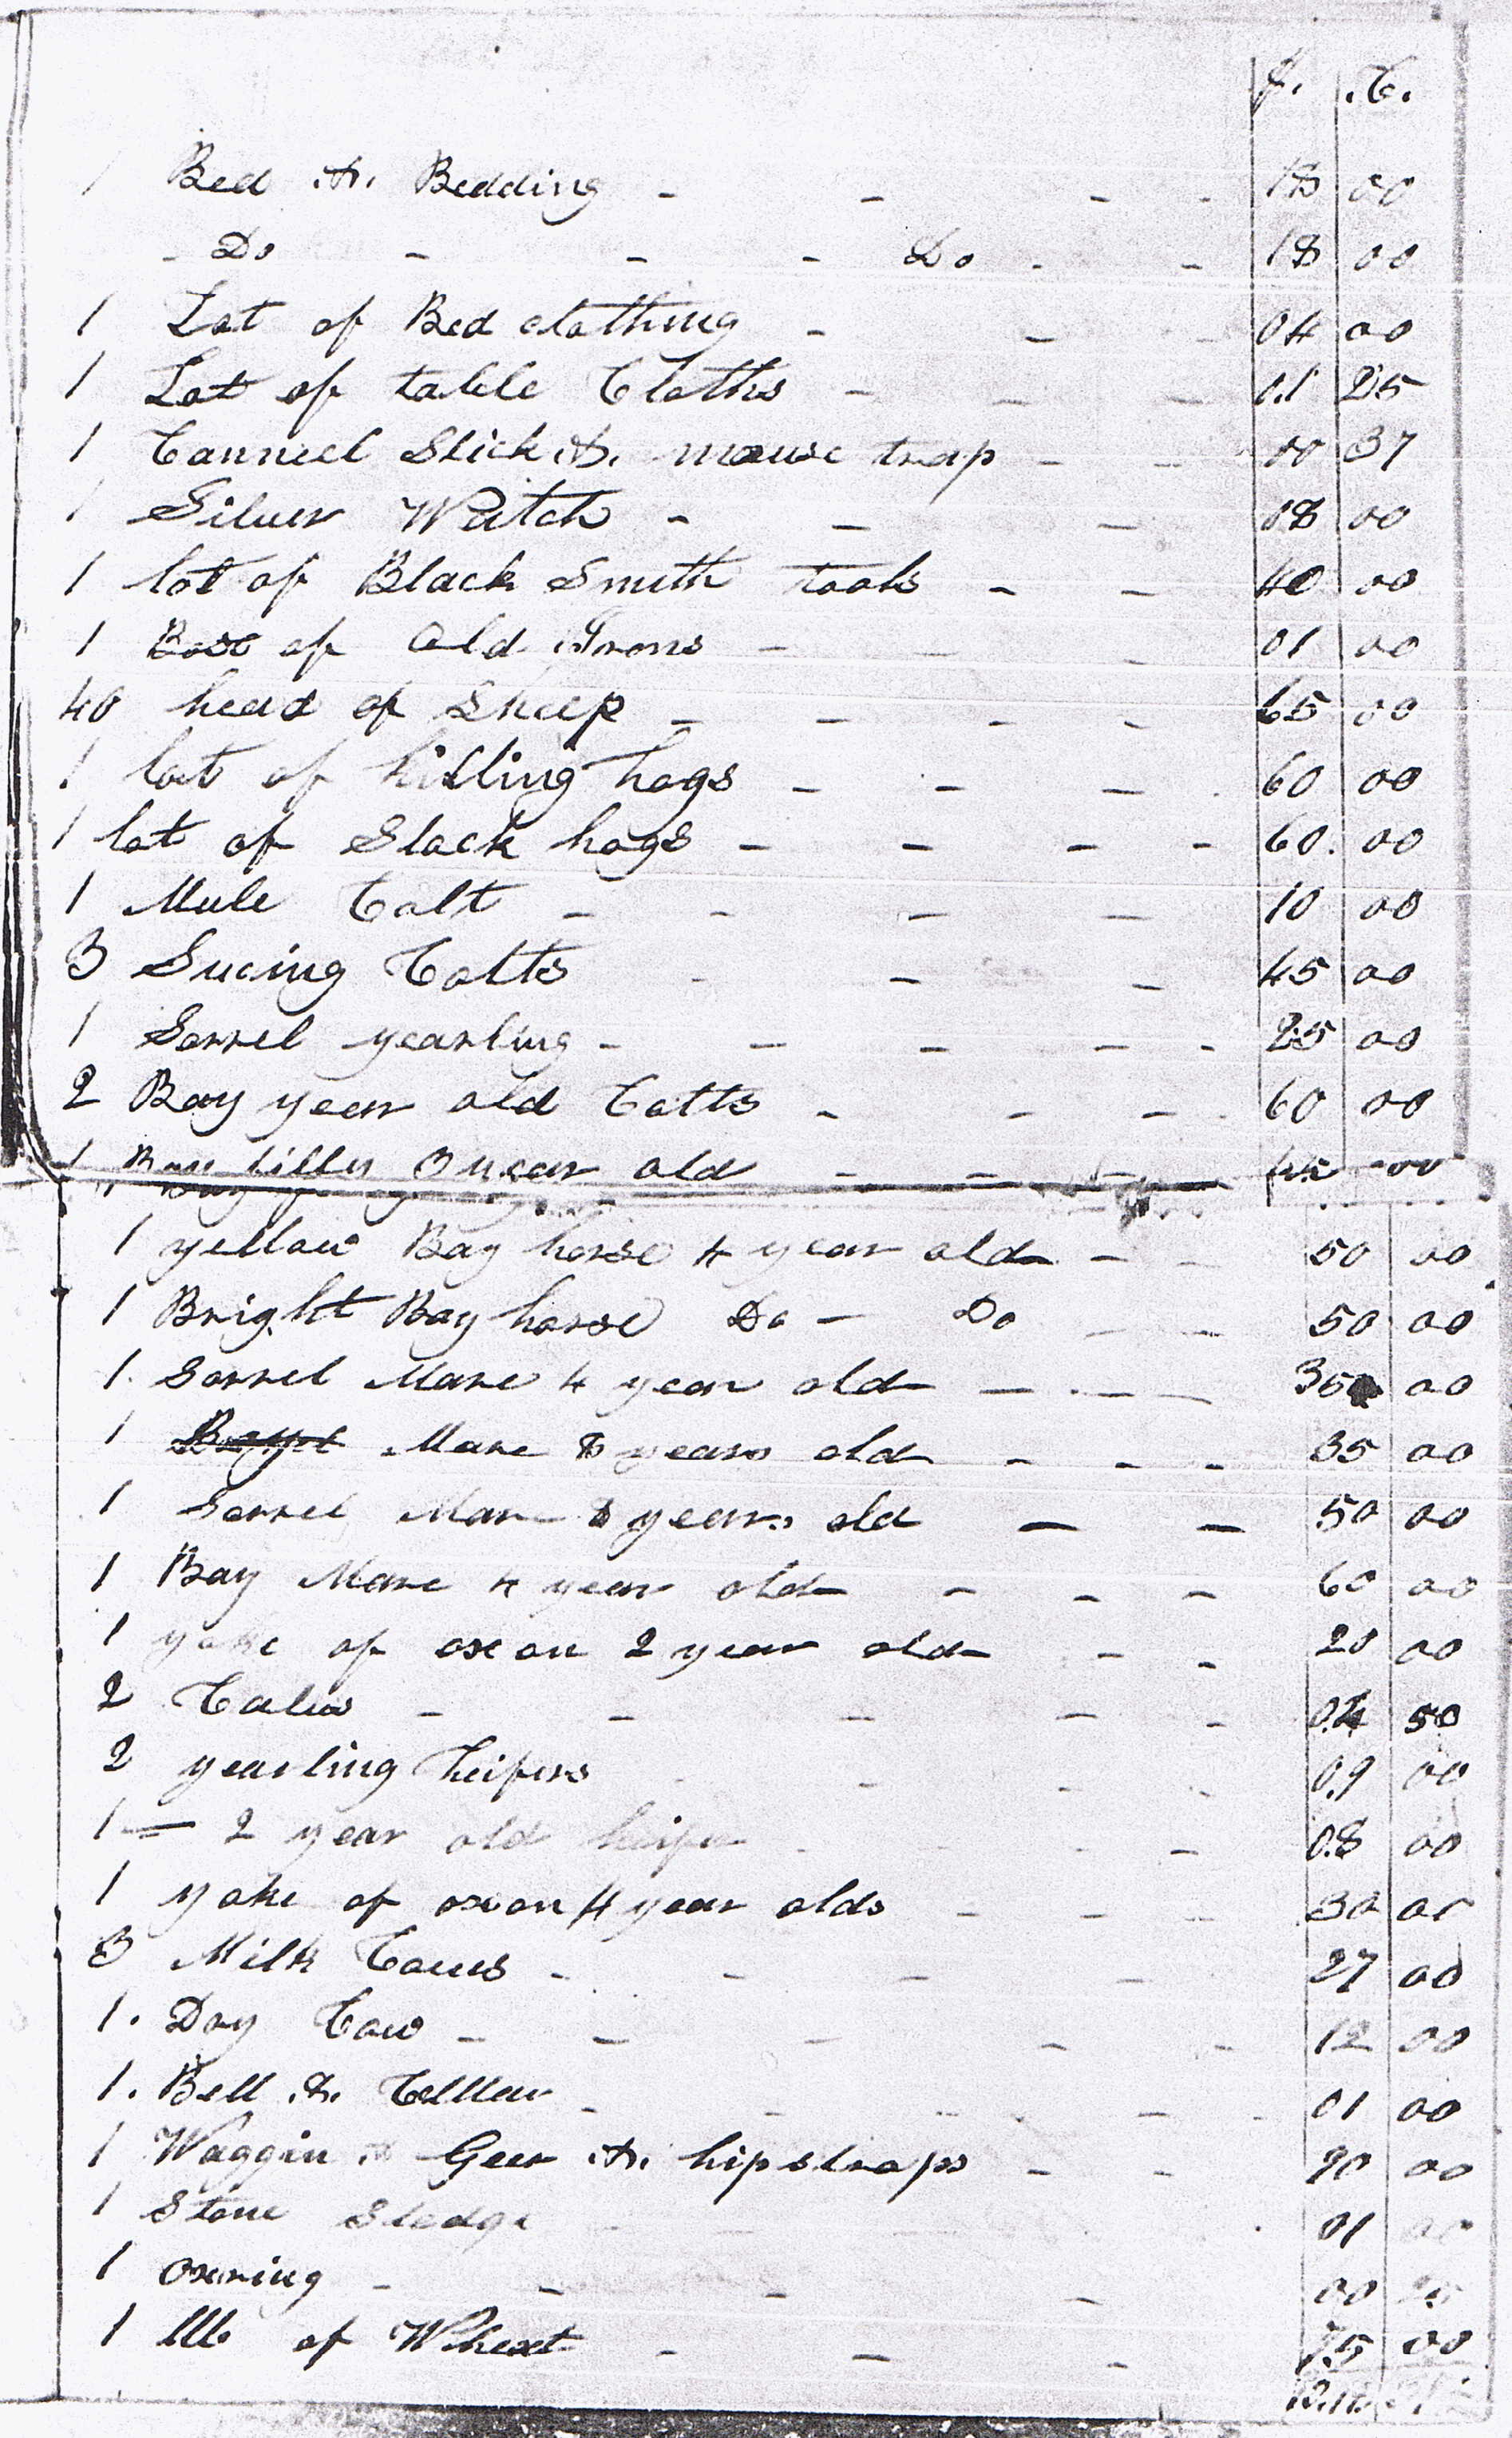 $. C.
1 Bed & Bedding - - - - 18 00
- Do - - - Do - - 18 00
1 Lot of Bed clothing - - - 04 00
1 Lot of table Cloths - - - 01 25
1 Canneel Stick & mouse trap - - 00 37
1 Silver Watch - - - 08 00
1 lot of Black Smith tools - - 40 00
1 Box of Old Irons - - 01 00
40 head of Sheep - - - - 65 00
1 lot of killing hogs - - - 60 00
1 lot of Stock hogs - - - - 60 00
1 Mule Colt - - - - 10 00
3 Sucing Colts - - - 45 00
1 Sorrel yearling - - - - - 25 00
2 Bay year old Colts - - - 60 00
1 Bay filley 3 year old - - - 00
1 yellow Bay horse 4 year old - - 50 00
1 Bright Bay horse Do - Do - - 50 00
1. Sorrel Mare 4 year old - - - 35 00
1 Mare 8 years old - - - 35 00
1 Sorrel Mare years old - - 50 00
1 Bay Mare 4 year old - - - 60 00
1 yoke of oxon 2 year old - - 20 00
2 Calvs - - - - - 04 50
2 yearling heifers - - - 09 00
1 - 2 year old heifer - - 08 00
1 yoke of oxon 4 year olds - - - 30 00
3 Milk Cows - - - - 27 00
1. Dry Cow - - - - - 12 00
1. Bell & Colllar - - - - 01 00
1 Waggin & Geer & hipstraps - - 90 00
1 Stone Sledge 01 00
1 oxring - - - - 00
1 lllb of Wheat - - - 75 00